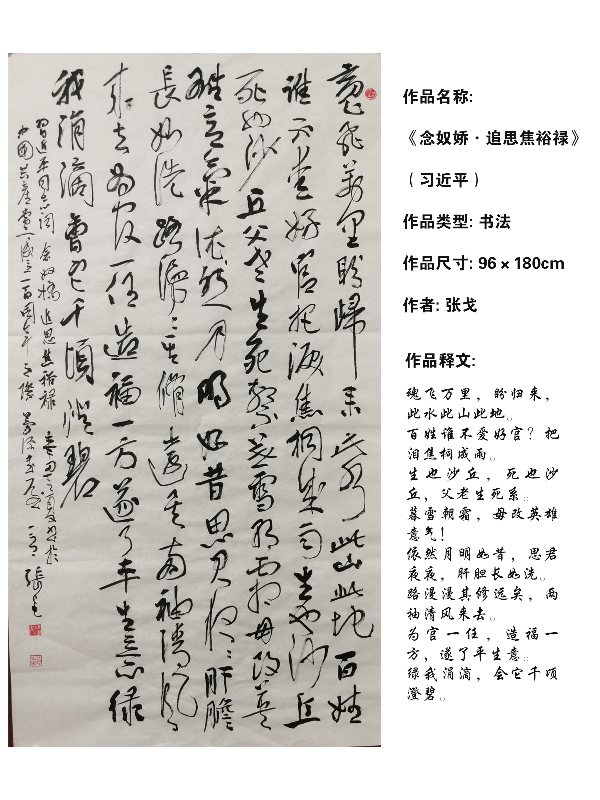 魂飞萬里盼歸来此水此山此地百姓
谁不爱好官把泪焦桐成雨生也沙丘
死也沙丘父老生死系暮雪朝霜毋改英
雄意氣依然月明如昔思君夜夜肝膽
長如洗路漫漫其修遠矣兩袖清风
来去为官一任造福一方遂了平生意绿
我涓滴會它千頃澄碧
習近平同志词念奴娇追思焦裕禄
中國共產黨成立一百周年之际
張戈
作品名称:
《念奴娇·追思焦裕禄》
（习近平）
作品类型: 书法
作品尺寸: 96×180cm
作者: 张戈
作品释文:
魂飞万里，盼归来，
此水此山此地。
百姓谁不爱好官？把
泪焦桐成雨。
生也沙丘，死也沙
丘，父老生死系。
暮雪朝霜，毋改英雄
意气！
依然月明如昔，思君
夜夜，肝胆长如洗。
路漫漫其修远矣，两
袖清风来去。
为官一任，造福一
方，遂了平生意。
绿我涓滴，会它千顷
澄碧。